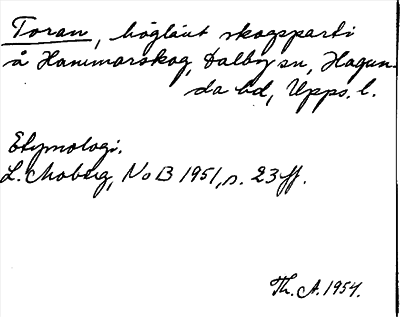 Toran, högländ skogsparti
å Hammarskog, Dalby sn, Hagun-
da hd, Upps. l.
Etymologi.
L. Moberg, NoB 1951, s. 23 ff.
Th. A. 1954.